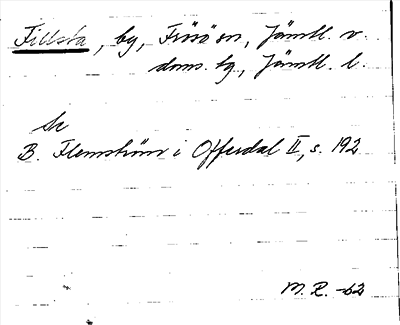 Fillsta, by, Frösön, Jämtl. v.
doms. hg, Jämtl. l.
Se
B. Flemström i Offerdal II, s. 192
M. R. -62